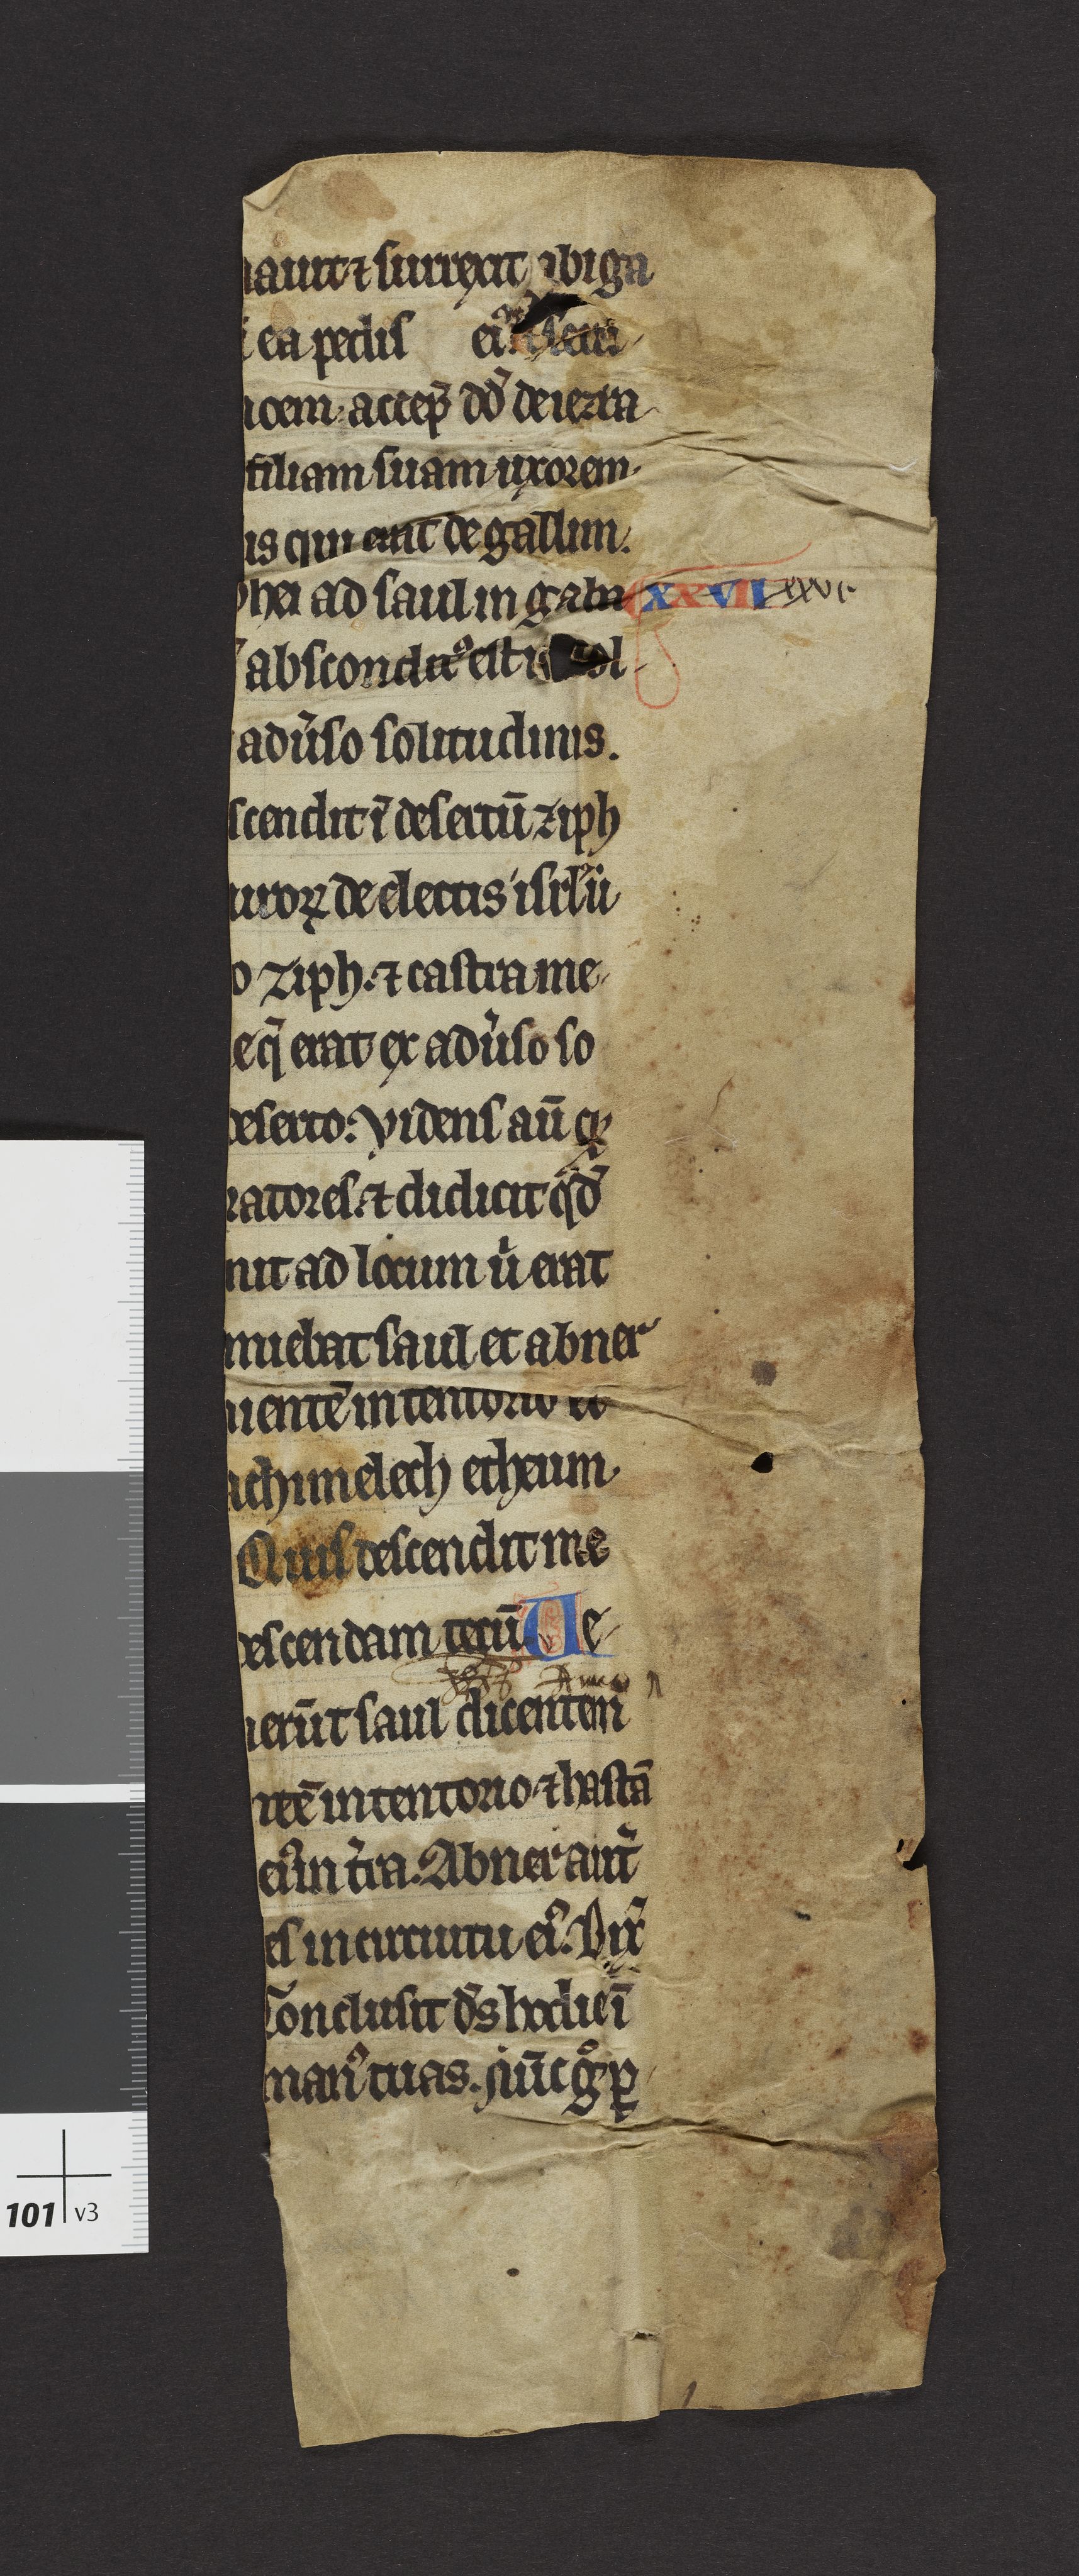 auit ⁊ surrexit abiga
ea pedis eiꝰ
accep̄ dd̄ de iezra
filiam suam uxorem
is qui erat de gallim.
phei ad saul in gaba XXVII xxvi
absconditꝰ est in col
adu̾so solitudinis.
scendit ī desertū ziph
uiroꝝ de electis isrl̄ ū
o ziph. ⁊ castra me
e q̄ erat ex adu̾so so
deserto: Videns aū qꝫ
ratores. ⁊ didicit qd̄
nit ad locum ū erat
miebat saul et abner
mientē in tentorio et
achimelech etheum
Quis descendit me
descendam tecū Ue
nerūt saul dicenten
ntē in tentorio ⁊ hastā
eiꝰ in t̾ra. Abner aut̄
es in circuitu eiꝰ. Dix̄
Conclusit ds̄ hodie ī
manꝰ tuas. nūc gͦ ꝑ
101 v3